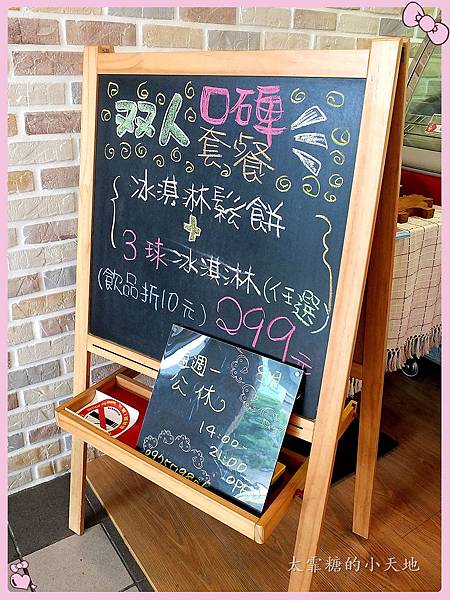 双人口碑
套餐
冰淇淋鬆餅
+
3球冰淇淋(任選)
(飲品折10元) 299元
每週一
公休
14:00~
21:00
OPEN
太霏糖的小天地